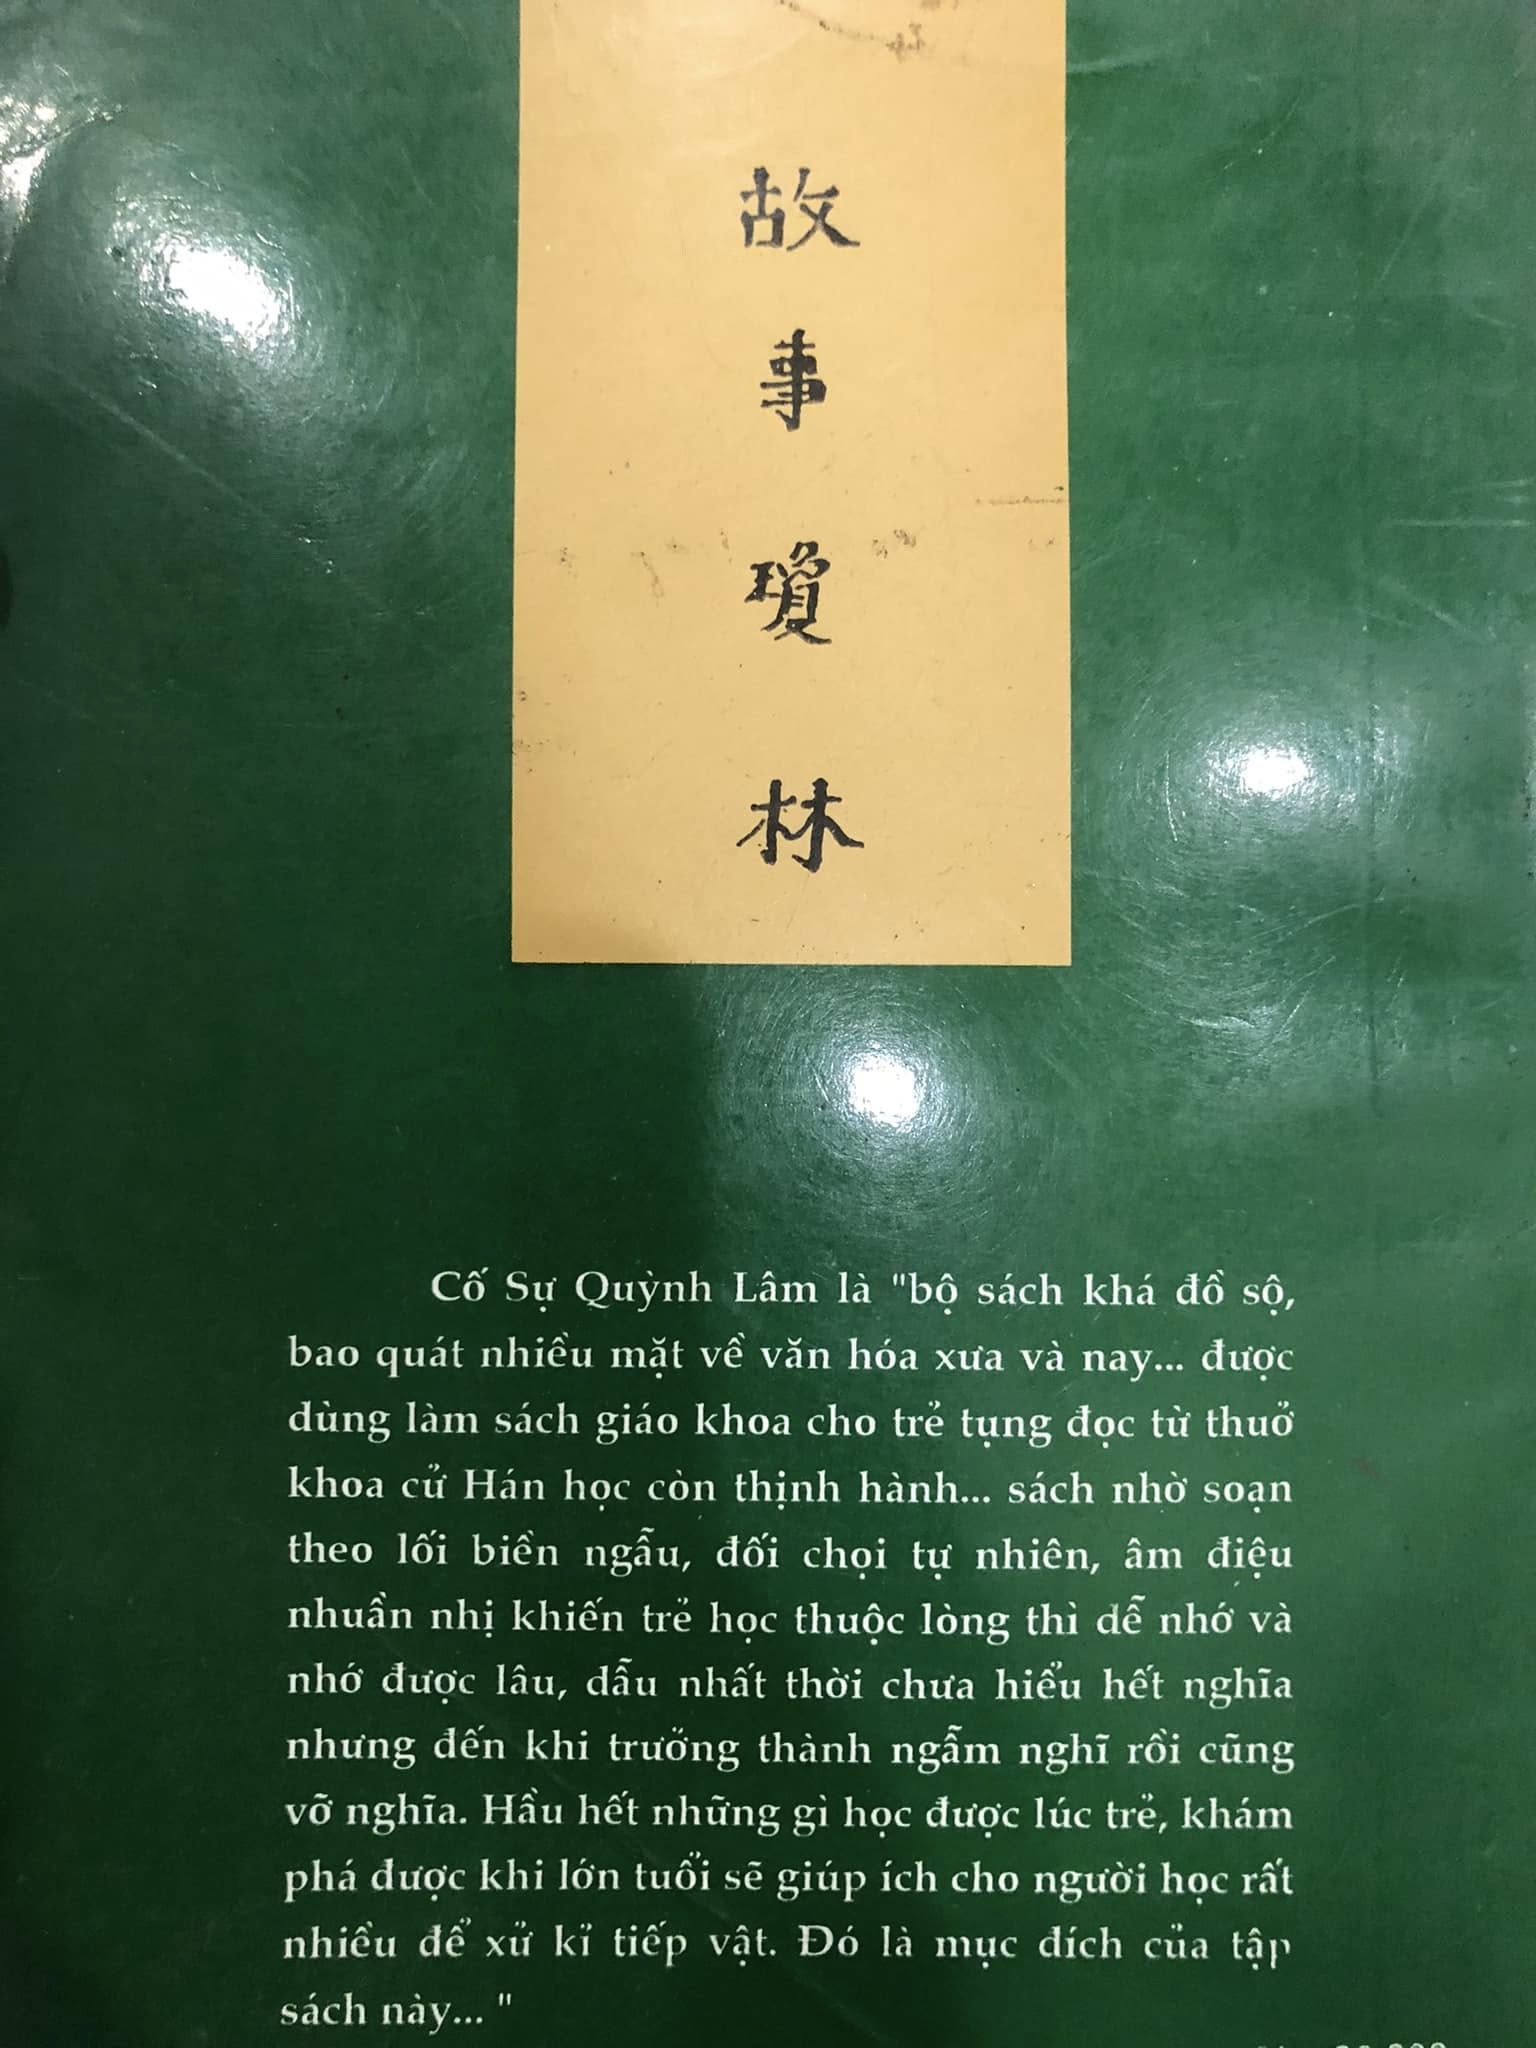 故
事
瓊
林
Cố Sự Quỳnh Lâm là "bộ sách khá đồ sộ,
bao quát nhiều mặt về văn hóa xưa và nay... được
dùng làm sách giáo khoa cho trẻ tụng đọc từ thuở
khoa cử Hán học còn thịnh hành... sách nhờ soạn
theo lối biền ngẫu, đối chọi tự nhiên, âm điệu
nhuần nhị khiến trẻ học thuộc lòng thì dễ nhớ và
nhớ được lâu, dẫu nhất thời chưa hiểu hết nghĩa
nhưng đến khi trưởng thành ngẫm nghĩ rồi cũng
vỡ nghĩa. Hầu hết những gì học được lúc trẻ, khám
phá được khi lớn tuổi sẽ giúp ích cho người học rất
nhiều để xử kỉ tiếp vật. Đó là mục đích của tập
sách này... "